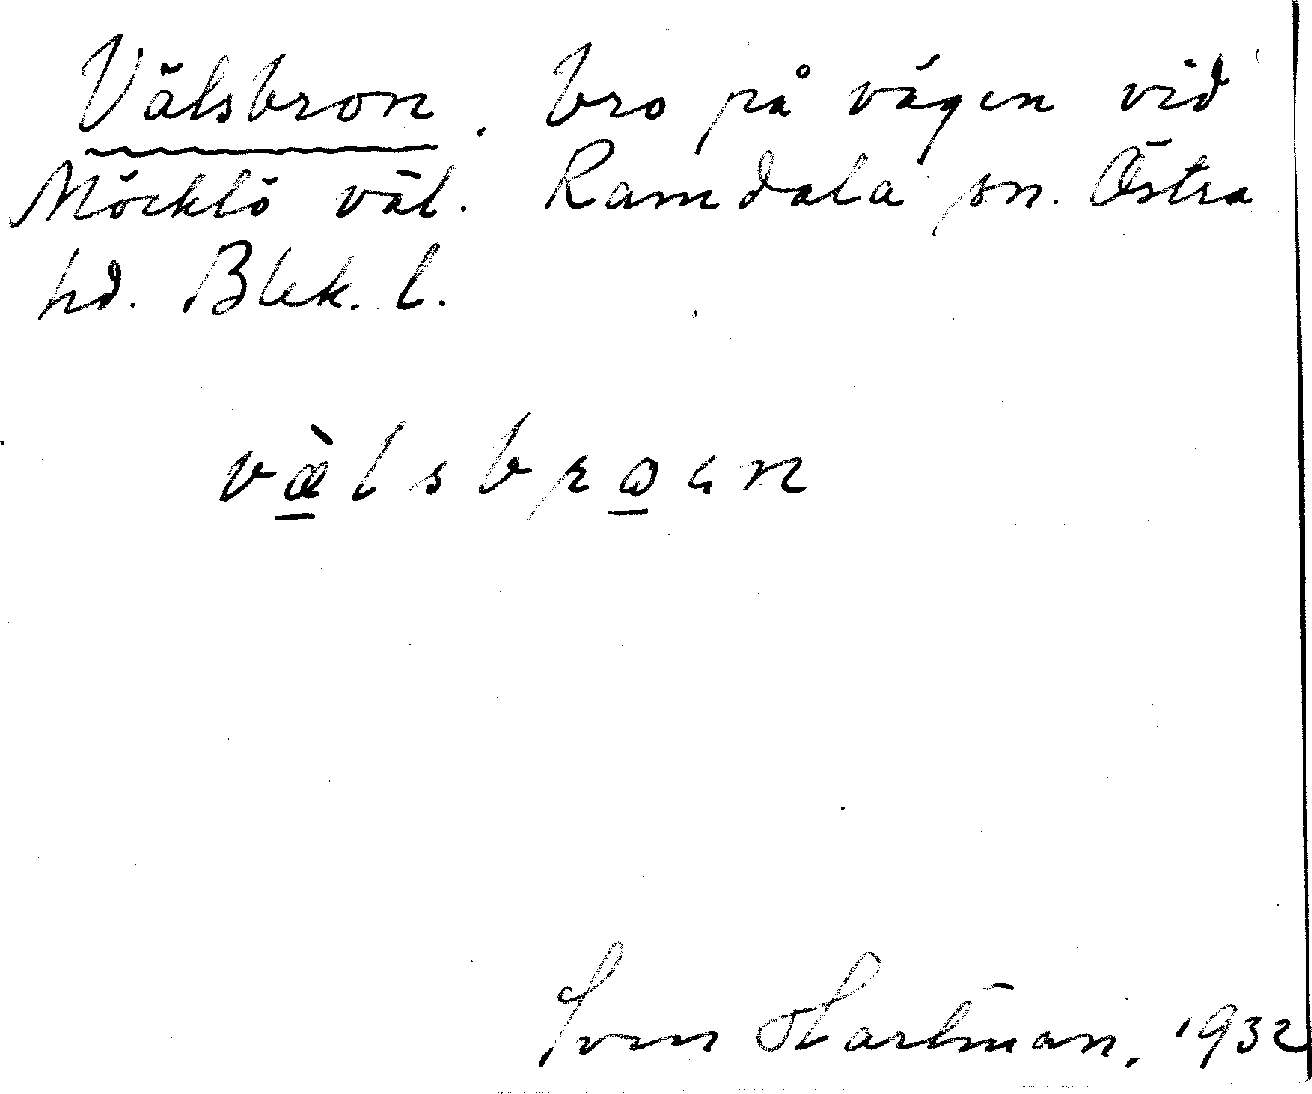 Välsbron. bro på vägen vid
Möcklö väl. Ramdala sn. Östra
hd. Blek. l.
væ̠̀lsbro̠ɩn
Sven Hartman. 1932